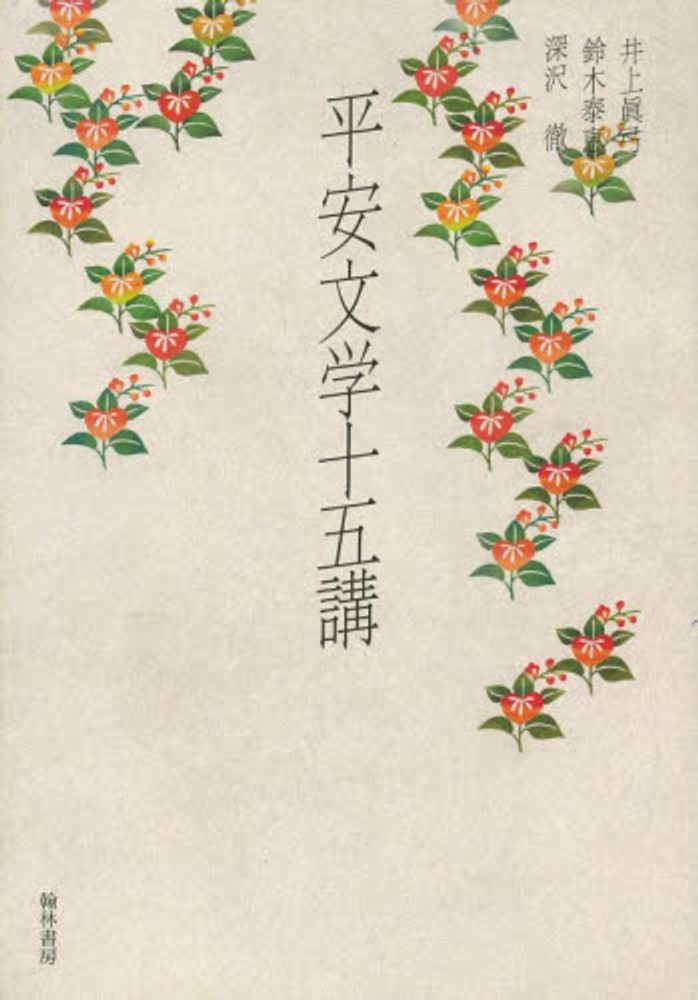 井上眞弓
鈴木泰恵
深沢 徹
平安文学十五講
翰林書房